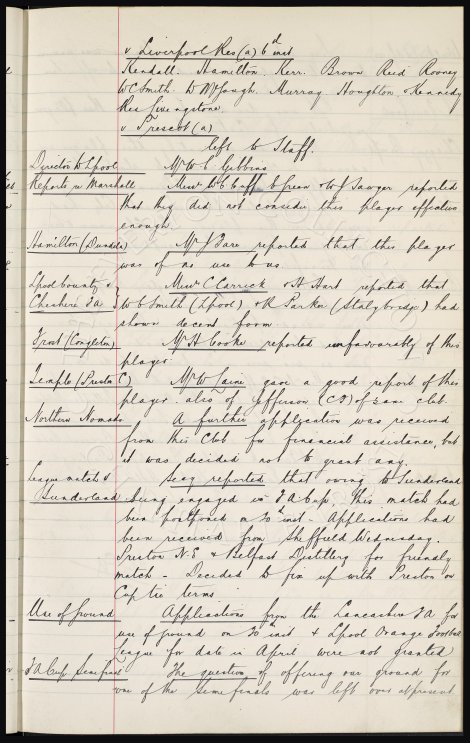 v Liverpool Res (a) 6th inst
Kendall. Hamilton. Kerr. Brown Reid Rooney
W C Smith. W McGough. Murray Houghton & Kennedy
Res Livingstone.
v Prescot (a)
left to Staff.
Director to L'pool Mr W C Gibbins
Reports re Marshall Messrs W C Cuff B Green & W J Sawyer reported
that they did not consider this player effective
enough.
Hamilton (Dundee) Mr J Bare reported that this player
was of no use to us.
L'pool County v Messrs Clarrick & H Hart reported that
Cheshire F A W C Smith (L'pool) & R Parker (Stalybridge) had
shown decent form
Frost (Congleton) Mr H Cooke reported unfavorably of this
player.
Temple (Preston C) Mr W Laine gave a good report of this
player also of Jefferson (CF) of same club.
Northern Nomads A further application was received
from this Club for financial assistance, but
it was decided not to grant any.
League match v Secy reported that owing to Sunderland
Sunderland being engaged in F A Cup, this match had
been postponed on 20th inst - Applications had
been received from Sheffield Wednesday.
Preston N.E & Belfast Distillery for friendly
match - Decided to fix up with Preston on
Cup tie terms
Use of Ground Applications from the Lancashire F A for
use of ground on 20th inst & L'pool Orange Football
League for date in April were not granted
F A Cup Semi final The question of offering our ground for
one of the semi finals was left over at present